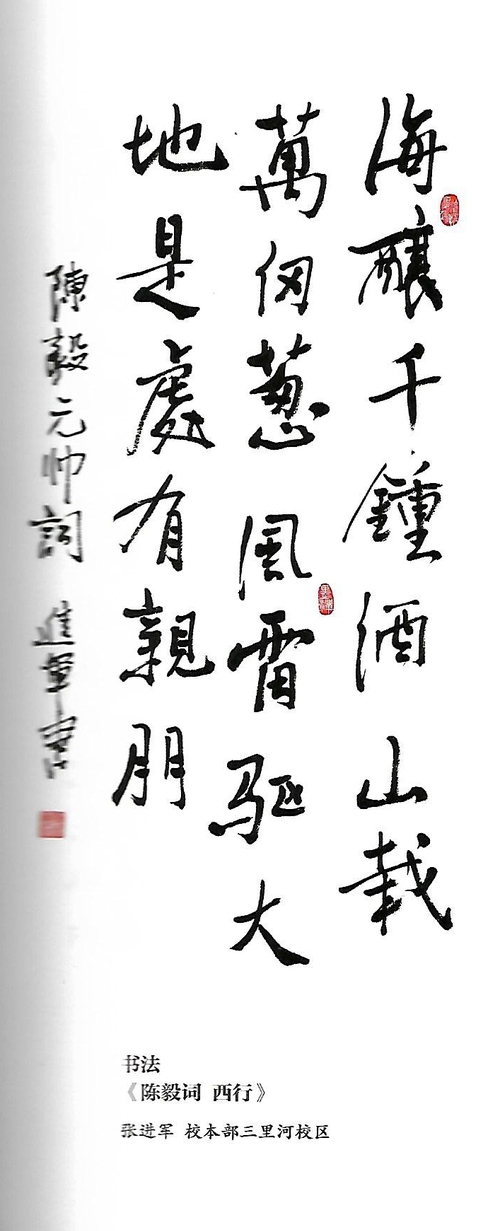 海釀千鍾酒山栽
萬仞葱風雷驅大
地是處有親朋
陳毅元帅詞 進軍書
书法
《陈毅词 西行》
张进军 校本部三里河校区